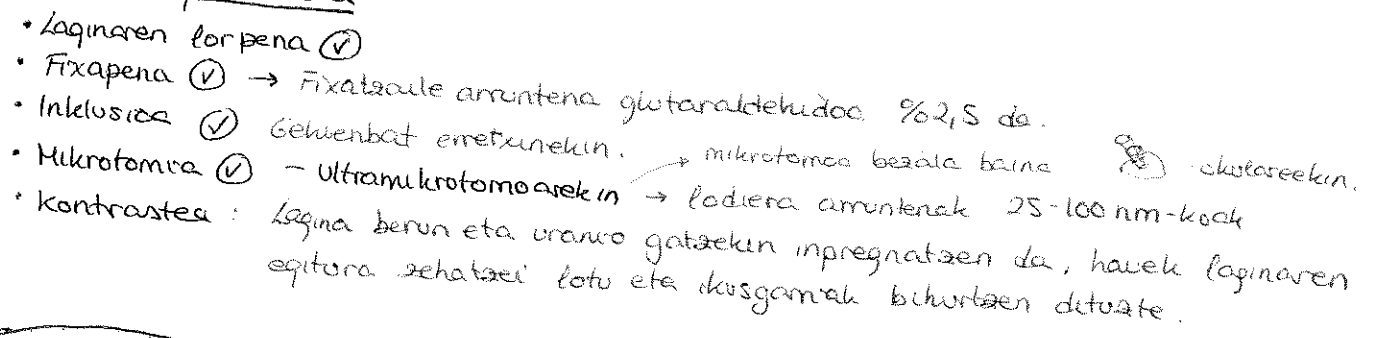 • Laginaren lorpena ✓
• Fixapena ✓ → Fixatzaile arruntena glutaraldehidoa %2,5 da.
• Inklusioa ✓ Gehienbat erretxinekin.
• Mikrotomia ✓ - Ultramikrotomoarekin → mikrotomoa bezala baina okularrekin.
→ lodiera arruntenak 25-100 nm-koak
• Kontrastea : Lagina berun eta uranio gatzekin inpregnatzen da, hauek laginaren
egitura zehatzei lotu eta ikusgarriak bihurtzen dituzte.